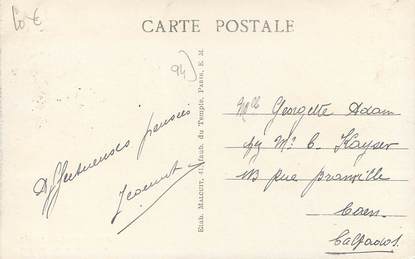 60 €
CARTE POSTALE
94
Affectueuses pensées
Etab. MALCUIT, 41, Faub. du Temple, PARIS, E. M.
Mlle Georgette Adam
chez Mr C. Kayser
113 Rue
Caen
Calvados.